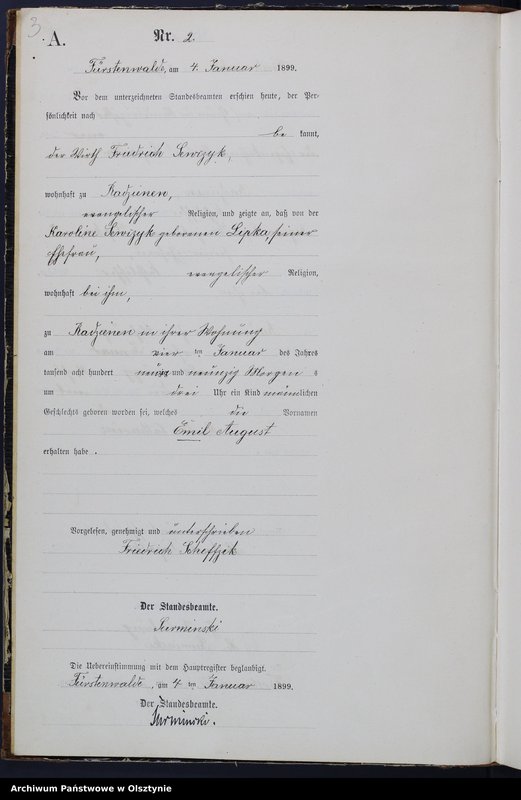 3
A.
Nr. 2.
Fürstenwalde, am 4. Januar 1899.
Vor dem unterzeichneten Standesbeamten erschien heute, der Per-
sönlichkeit nach
be kannt,
der Wirth Friedrich Sewzyk,
wohnhaft zu Radzienen,
evangelischer Religion, und zeigte an, daß von der
Karoline Sewczyk geborenen Lipka, seiner
Ehefrau,
evangelischer Religion,
wohnhaft bei ihm,
zu Radzienen in ihrer Wohnung
am vier ten Januar des Jahres
tausend acht hundert neun und neunzig Morgen s
um drei Uhr ein Kind männlichen
Geschlechts geboren worden sei, welches die Vornamen
Emil August
erhalten habe .
Vorgelesen, genehmigt und unterschrieben
Friedrich Scheffzik
Der Standesbeamte.
Surminski
Die Uebereinstimmung mit dem Hauptregister beglaubigt.
Fürstenwalde, am 4 ten Januar 1899.
Der Standesbeamte.
Surminski.
Archiwum Państwowe w Olsztynie